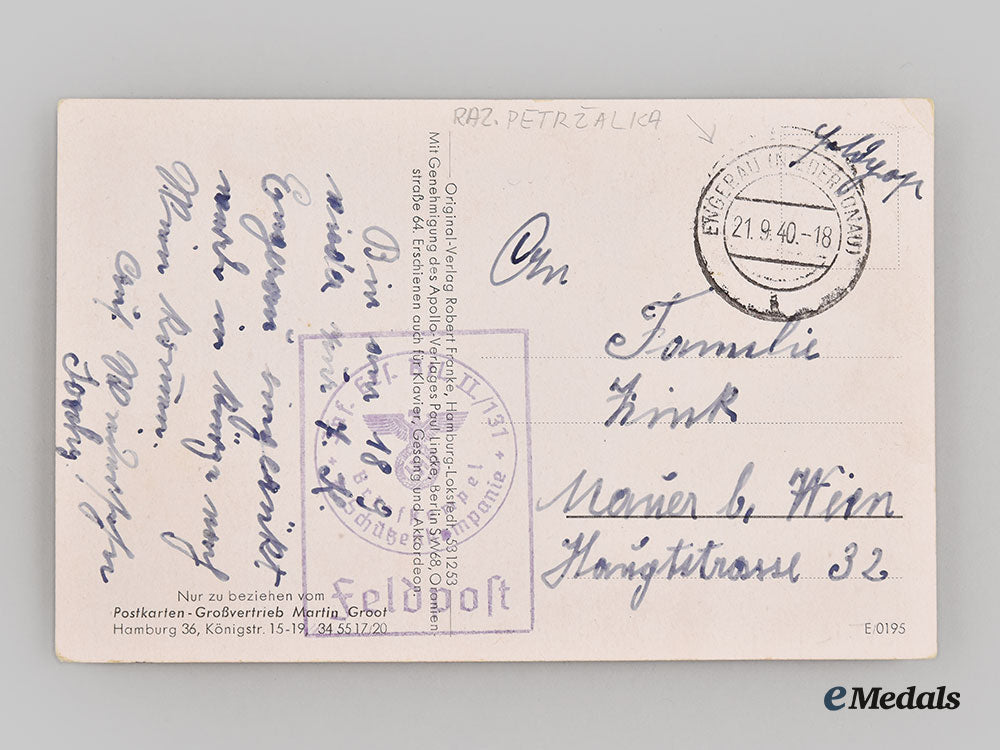 RAZ. PETRŽALKA
Feldpost
ENGERAU (NIEDERDONAU)
21.9.40.-18
An
Familie
Zink
Mauer b. Wien
Hauptstrasse 32
Original-Verlag Robert Franke, Hamburg-Lokstedt 531253
Mit Genehmigung des Apollo-Verlages Paul Lincke, Berlin SW68, Oranien-
straße 64. Erschienen auch für Klavier, Gesang und Akkordeon.
Bin am 18.9.
wieder
Engerau eingerückt
werde in kurze nach
Wien kommen.
Auf Wiedersehn
II/131
Schützenkompanie
Feldpost
Nur zu beziehen vom
Postkarten-Großvertrieb Martin Groot
Hamburg 36, Königstr. 15-19, 34 55 17/20
E/0195
eMedals